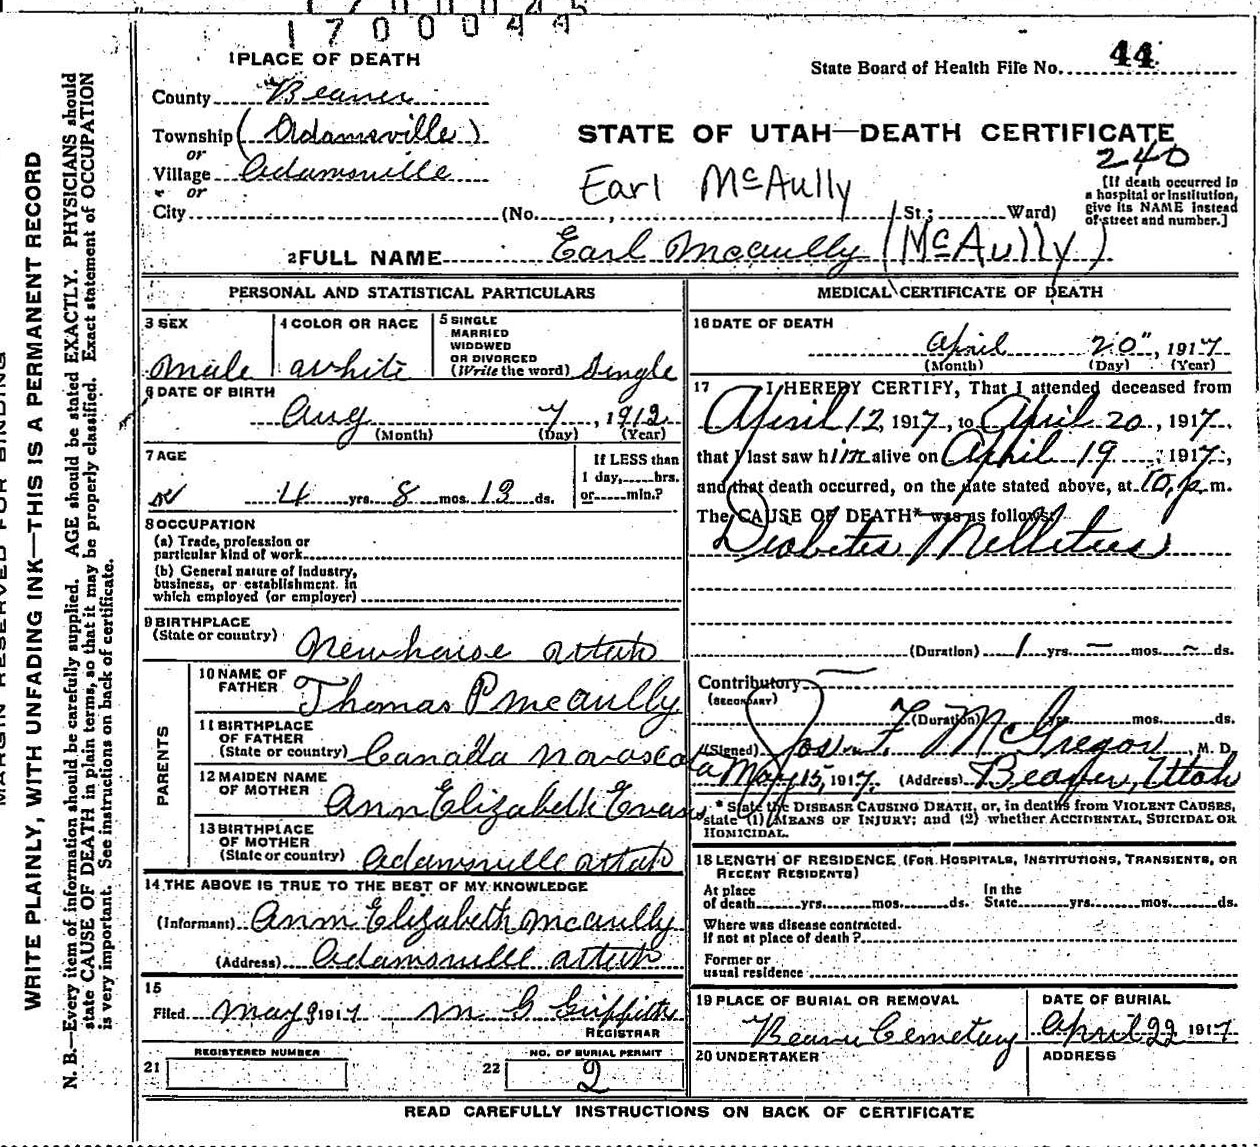 1700044
1 PLACE OF DEATH
State Board of Health File No. 44
County Beaver
Township (Adamsville)
or
STATE OF UTAH—DEATH CERTIFICATE
240
Village Adamsville
or
Earl McAully
[If death occurred in
a hospital or institution,
give its NAME instead
of street and number.]
City (No. , St.; Ward)
2 FULL NAME Earl Mcaully (McAully)
PERSONAL AND STATISTICAL PARTICULARS
3 SEX
male
4 COLOR OR RACE
white
5 SINGLE
MARRIED
WIDOWED
OR DIVORCED
(Write the word) Single
6 DATE OF BIRTH
Aug 7, 1912
(Month) (Day) (Year)
7 AGE
4 yrs. 8 mos. 13 ds.
If LESS than
1 day, hrs.
or min.?
8 OCCUPATION
(a) Trade, profession or
particular kind of work
(b) General nature of industry,
business, or establishment in
which employed (or employer)
9 BIRTHPLACE
(State or country) Newhouse Utah
PARENTS
10 NAME OF
FATHER Thomas P mcaully
11 BIRTHPLACE
OF FATHER
(State or country) Canada Novascota
12 MAIDEN NAME
OF MOTHER Ann Elizabeth Evans
13 BIRTHPLACE
OF MOTHER
(State or country) Adamsville Utah
14 THE ABOVE IS TRUE TO THE BEST OF MY KNOWLEDGE
(Informant) Ann Elizabeth mcaully
(Address) Adamsville Utah
15
Filed May 9 1917 M G Griffith
REGISTRAR
REGISTERED NUMBER
21
NO. OF BURIAL PERMIT
22 2
MEDICAL CERTIFICATE OF DEATH
16 DATE OF DEATH
April 20", 1917
(Month) (Day) (Year)
17 I HEREBY CERTIFY, That I attended deceased from
April 12, 1917, to April 20, 1917,
that I last saw him alive on April 19, 1917,
and that death occurred, on the date stated above, at 10 p m.
The CAUSE OF DEATH* was as follows:
Diabetes Mellitus
(Duration) 1 yrs. – mos. – ds.
Contributory
(SECONDARY)
(Duration) yrs. mos. ds.
(Signed) Jos. F. McGregor, M. D.
May 15, 1917. (Address) Beaver, Utah
* State the DISEASE CAUSING DEATH, or, in deaths from VIOLENT CAUSES,
state (1) MEANS OF INJURY; and (2) whether ACCIDENTAL, SUICIDAL OR
HOMICIDAL.
18 LENGTH OF RESIDENCE (FOR HOSPITALS, INSTITUTIONS, TRANSIENTS, OR
RECENT RESIDENTS)
At place
of death yrs. mos. ds.
In the
State yrs. mos. ds.
Where was disease contracted.
If not at place of death?
Former or
usual residence
19 PLACE OF BURIAL OR REMOVAL
Beaver Cemetary
DATE OF BURIAL
April 22 1917
20 UNDERTAKER
ADDRESS
READ CAREFULLY INSTRUCTIONS ON BACK OF CERTIFICATE
MARGIN RESERVED FOR BINDING
WRITE PLAINLY, WITH UNFADING INK—THIS IS A PERMANENT RECORD
N. B.—Every item of information should be carefully supplied. AGE should be stated EXACTLY. PHYSICIANS should
state CAUSE OF DEATH in plain terms, so that it may be properly classified. Exact statement of OCCUPATION
is very important. See instructions on back of certificate.